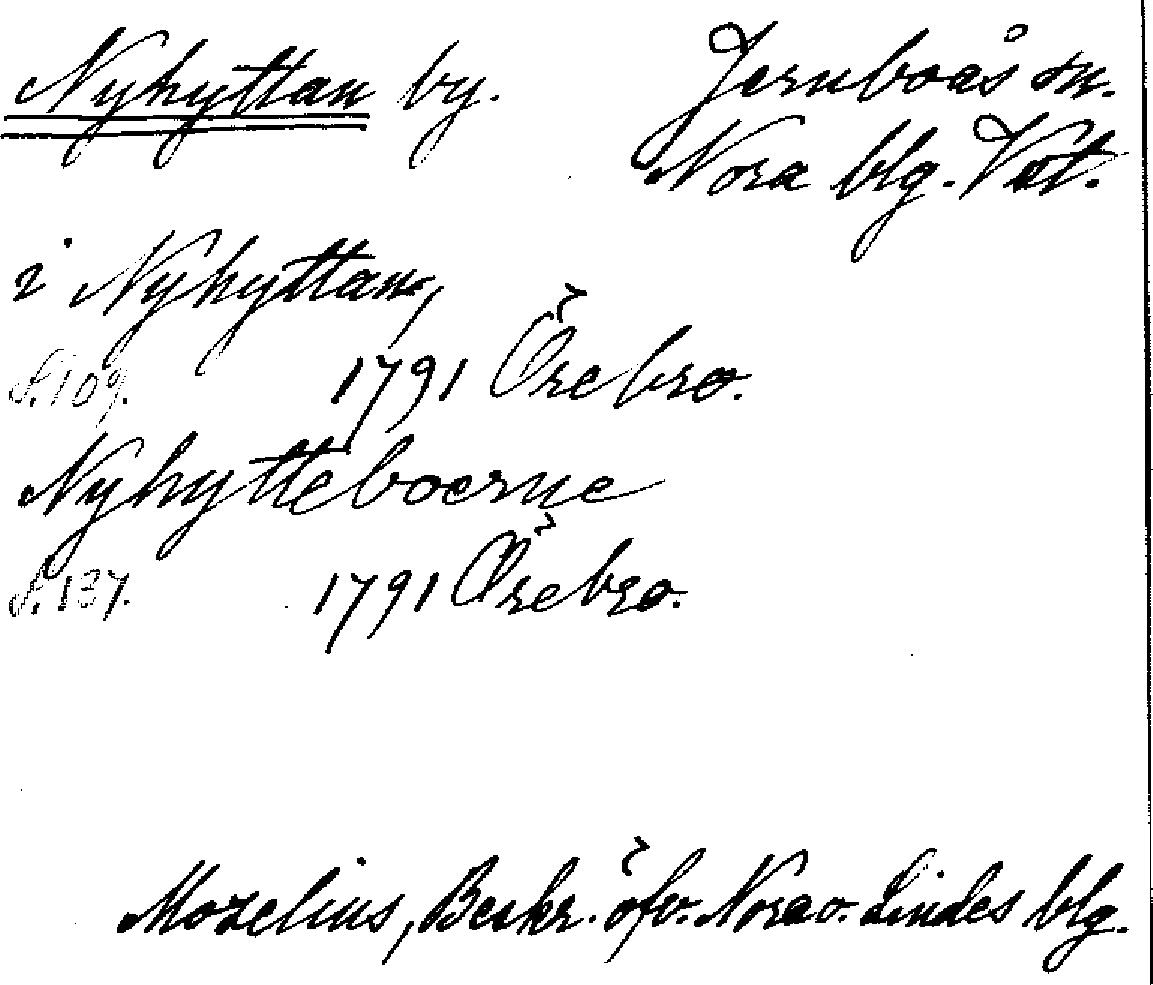 Nyhyttan by.
Jernboås sn.
Nora blg. Vstm.
i Nyhyttan,
S. 109. 1791 Örebro.
Nyhytteboerne
S. 137. 1791 Örebro.
Mozelius, Beskr. öfv. Nora o. Lindes blg.